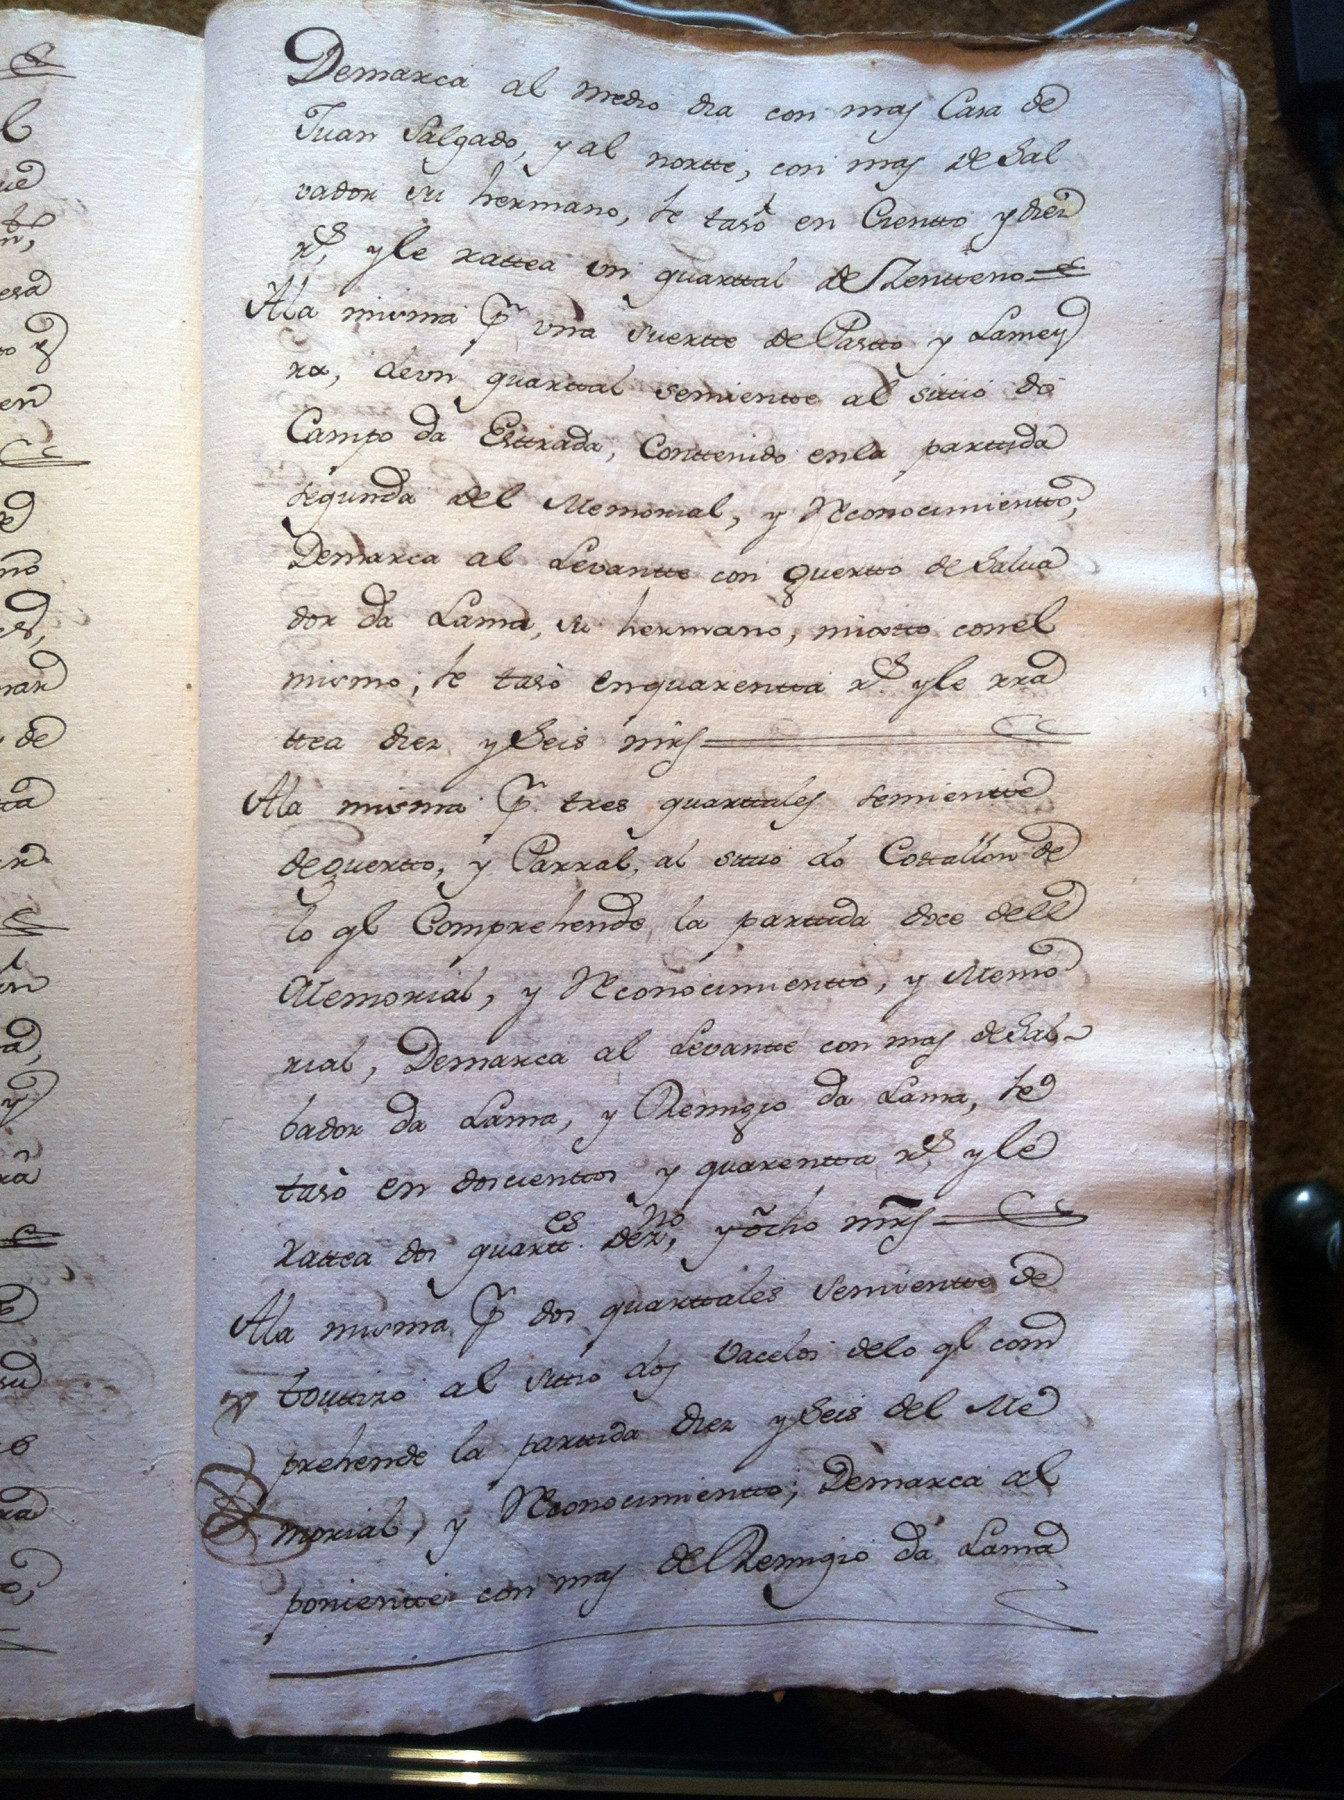 Demarca al medio dia con mas Casa de
Juan Salgado, y al nortte, con mas de Sal
vador su hermano, se tasò en Cientto y diez
rs, y le rattea un quarttal de Zentteno
Ala misma Pe una suertte de Pastto y Lamey
ra, de un quarttal semientte al sittio do
Campo da Esttrada, Conttenido en la parttida
segunda del Memorial, y Reconocimientto,
Demarca al Levantte con guertto de Salva
dor da Lama, su hermano, mistto con el
mismo; se tasò en quarentta rs. y le rra
ttea diez y Seis mrs
Ala misma Pe tres quarttales semientte
de guertto, y Parral, al sittio do Costallon de
lo ql Comprehende la parttida doce dell
Memorial, y Reconocimientto, y Memo
rial, Demarca al Levantte con mas de Sal-
bador da Lama, y Remigio da Lama, se
tasò en doscienttos y quarentta rs. y le
Rattea dos quarttes. de zno, y ocho mrs
Ala misma Pe dos quarttales Semientte de
touttizo al sittio dos Vacelos de lo ql com
prehende la parttida diez y Seis del Me
morial, y Reconocimientto; Demarca al
ponientte con mas de Remigio da Lama